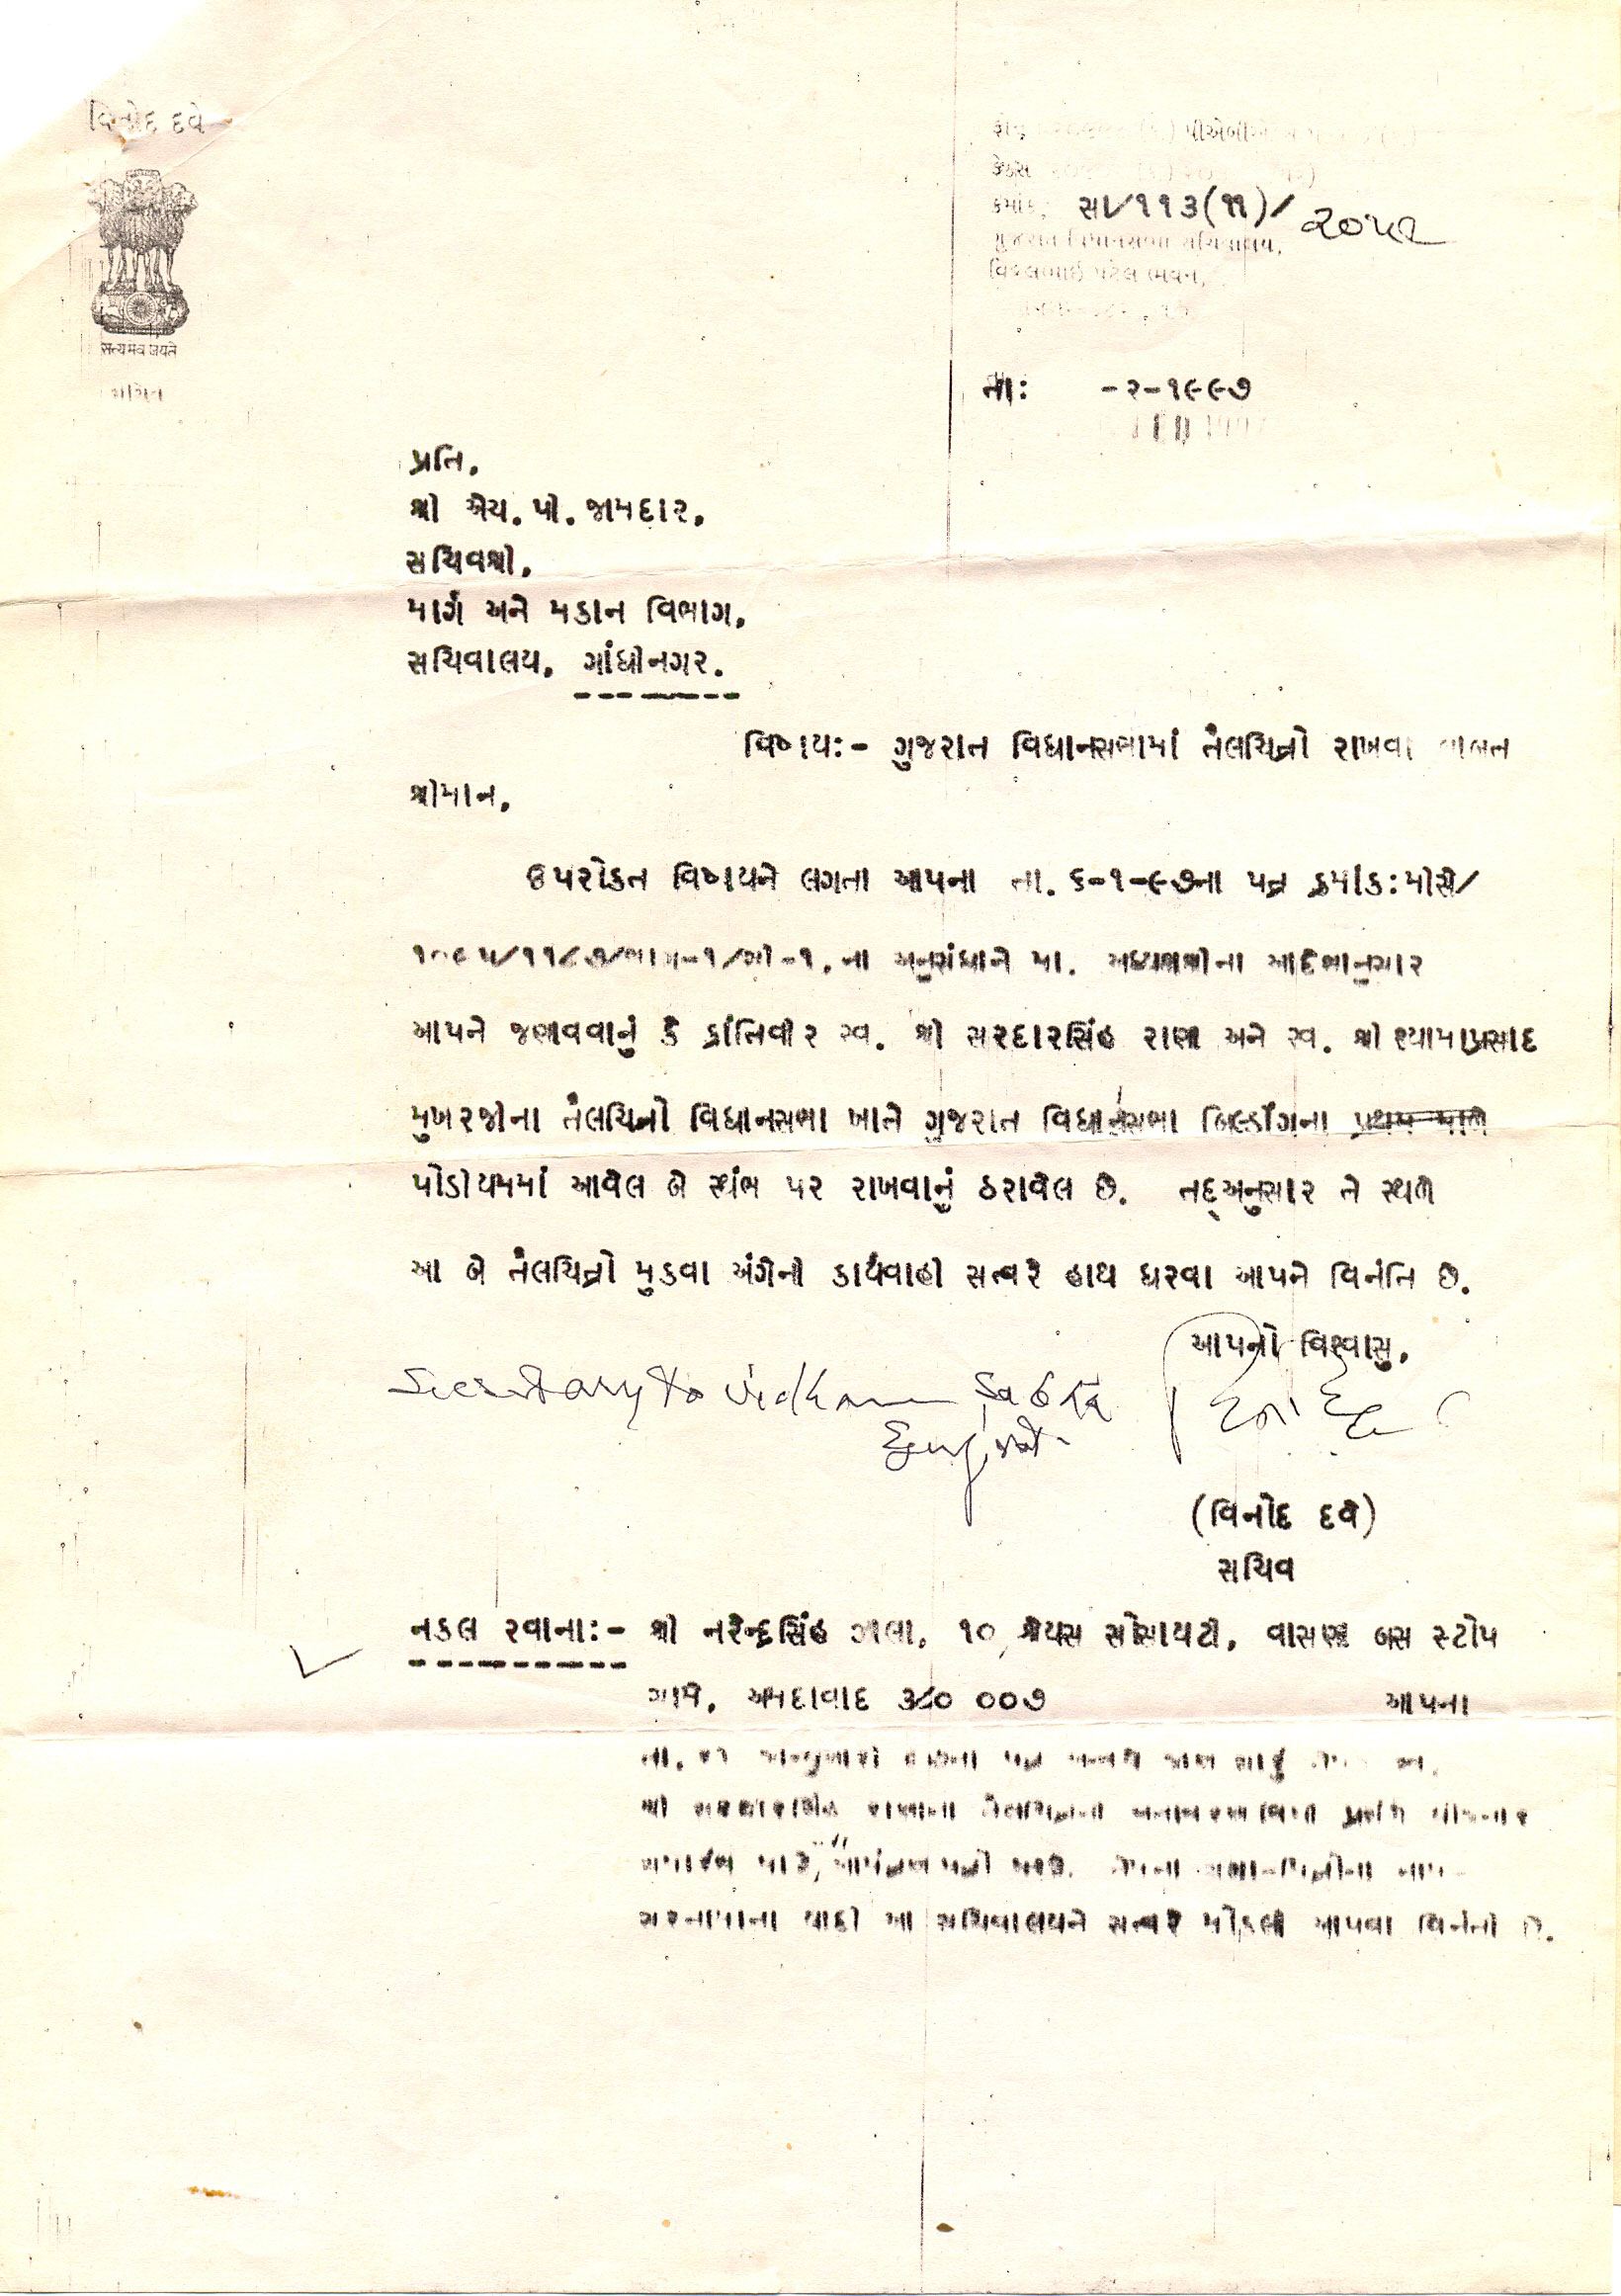 વિનોદ દવે
सत्यमेव जयते
ક્રમાંક: સા/૧૧૩(૧૧)/૨૦૫૨
ગુજરાત વિધાનસભા સચિવાલય,
વિઠ્ઠલભાઈ પટેલ ભવન,
તા: -૨-૧૯૯૭
પ્રતિ,
શ્રી એચ. પી. જામદાર,
સચિવશ્રી,
માર્ગ અને મકાન વિભાગ,
સચિવાલય, ગાંધીનગર.
વિષય:- ગુજરાત વિધાનસભામાં તૈલચિત્રો રાખવા બાબત
શ્રીમાન,
ઉપરોકત વિષયને લગતા આપના તા. ૬-૧-૯૭ના પત્ર ક્રમાંક:મીસ/
ના અનુસંધાને મા. અધ્યક્ષશ્રીના આદેશાનુસાર
આપને જણાવવાનું કે ક્રાંતિવીર સ્વ. શ્રી સરદારસિંહ રાણા અને સ્વ. શ્રી શ્યામાપ્રસાદ
મુખરજીના તૈલચિત્રો વિધાનસભા ખાતે ગુજરાત વિધાનસભા બિલ્ડીંગના પ્રથમ માળે
પોડીયમમાં આવેલ બે સ્થંભ પર રાખવાનું ઠરાવેલ છે. તદ્અનુસાર તે સ્થળે
આ બે તૈલચિત્રો મુકવા અંગેની કાર્યવાહી સત્વરે હાથ ધરવા આપને વિનંતિ છે.
આપનો વિશ્વાસુ,
Secretary to vidhan Sabha
Gujrat
(વિનોદ દવે)
સચિવ
નકલ રવાના:- શ્રી નરેન્દ્રસિંહ ઝાલા, ૧૦, શ્રેયસ સોસાયટી, વાસણા બસ સ્ટોપ
સામે, અમદાવાદ ૩૮૦ ૦૦૭ આપના
તા. પત્ર અન્વયે જાણ સારૂ
શ્રી સરદારસિંહ રાણાના તૈલચિત્રના અનાવરણ વિધી પ્રસંગે યોજનાર
સમારંભ માટે, આમંત્રણ પત્રો નામ
સરનામાના યાદી આ સચિવાલયને સત્વરે મોકલી આપવા વિનંતી છે.